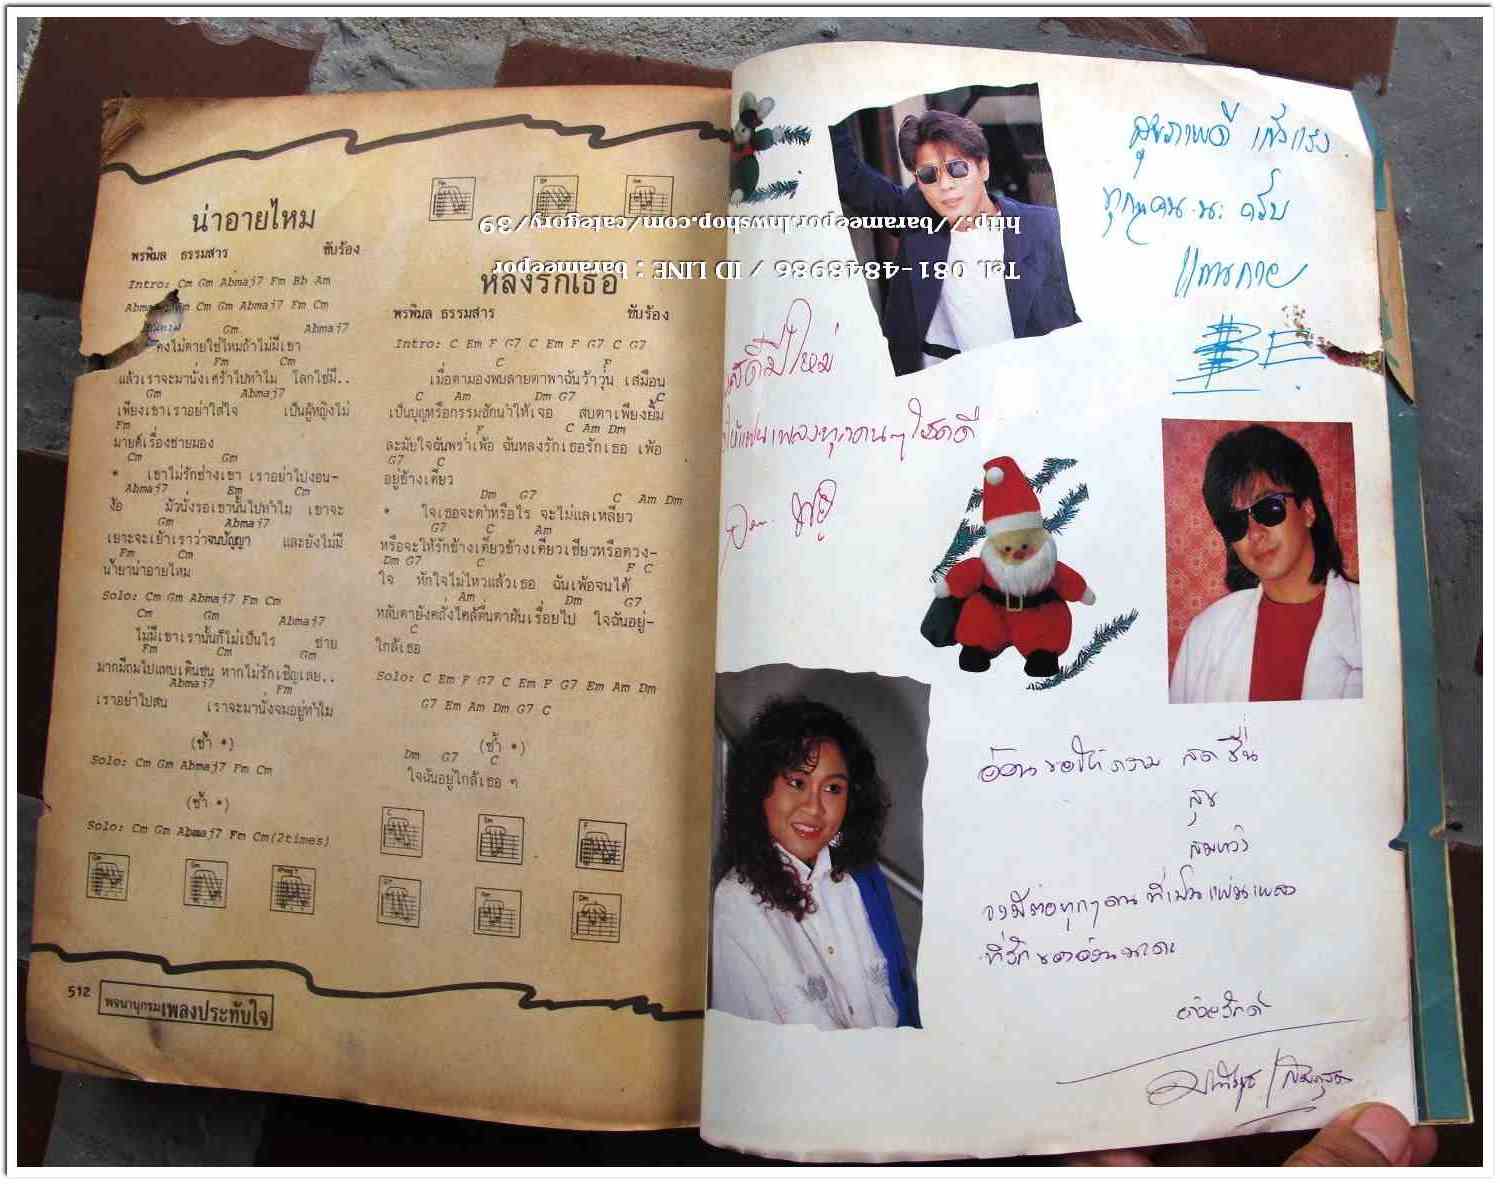 น่าอายไหม
พรพิมล ธรรมสาร ขับร้อง
Intro: Cm Gm Abmaj7 Fm Bb Am
Cm Gm Abmaj7 Fm Cm
Gm Abmaj7
คงไม่ตายใช่ไหมถ้าไม่มีเขา
Fm Cm
แล้วเราจะมานั่งเศร้าไปทำไม โลกใช่มี..
Gm Abmaj7
เพียงเขาเราอย่าใส่ใจ เป็นผู้หญิงไม่
Fm
มายด์เรื่องชายมอง
Cm Gm
* เขาไม่รักช่างเขา เราอย่าไปงอน-
Abmaj7 Em Cm
ง้อ มัวนั่งรอเขานั้นไปทำไม เขาจะ
Gm Abmaj7
เยาะจะเย้าเราว่าจนปัญญา และยังไม่มี
Fm Cm
น้ำยาน่าอายไหม
Solo: Cm Gm Abmaj7 Fm Cm
Cm Gm Abmaj7
ไม่มีเขาเรานั้นก็ไม่เป็นไร ชาย
Fm Cm Gm
มากมีถมไปแทบเดินชน หากไม่รักเชิญเลย..
Abmaj7 Fm
เราอย่าไปสน เราจะมานั่งจมอยู่ทำไม
(ซ้ำ *)
Solo: Cm Gm Abmaj7 Fm Cm
(ซ้ำ *)
Solo: Cm Gm Abmaj7 Fm Cm(2times)
หลงรักเธอ
พรพิมล ธรรมสาร ขับร้อง
Intro: C Em F G7 C Em F G7 C G7
C F
เมื่อตามองพบสายตาพาฉันว้าวุ่น เสมือน
C Am Dm G7 C
เป็นบุญหรือกรรมชักนำให้เจอ สบตาเพียงยิ้ม
F C Am Dm
ละมัยใจฉันพร่ำเพ้อ ฉันหลงรักเธอรักเธอ เพ้อ
G7 C
อยู่ข้างเดียว
Dm G7 C Am Dm
* ใจเธอจะดำหรือไร จะไม่แลเหลียว
G7 C Am
หรือจะให้รักข้างเดียวข้างเดียวเชียวหรือดวง-
Dm G7 C F C
ใจ หักใจไม่ไหวแล้วเธอ ฉันเพ้อจนได้
Am Dm G7
หลับตายังคลั่งไคล้ตื่นตาฝันเรื่อยไป ใจฉันอยู่-
C
ใกล้เธอ
Solo: C Em F G7 C Em F G7 Em Am Dm
G7 Em Am Dm G7 C
(ซ้ำ *)
Dm G7 C
ใจฉันอยู่ใกล้เธอ ๆ
512 พจนานุกรมเพลงประทับใจ
http://barameepor.lnwshop.com/category/39
Tel. 081-4848986 / ID LINE : barameepor
สุขภาพดี แข็งแรง
ทุกๆคน นะ ครับ
ให้แฟนเพลงทุกคนๆ โชคดี
อ้อน ขอให้ความ สดชื่น
สุข
สมหวัง
จงมีต่อทุกๆคน ที่เป็นแฟนเพลง
ที่รักของอ้อนนะคะ
ด้วยรักค่ะ